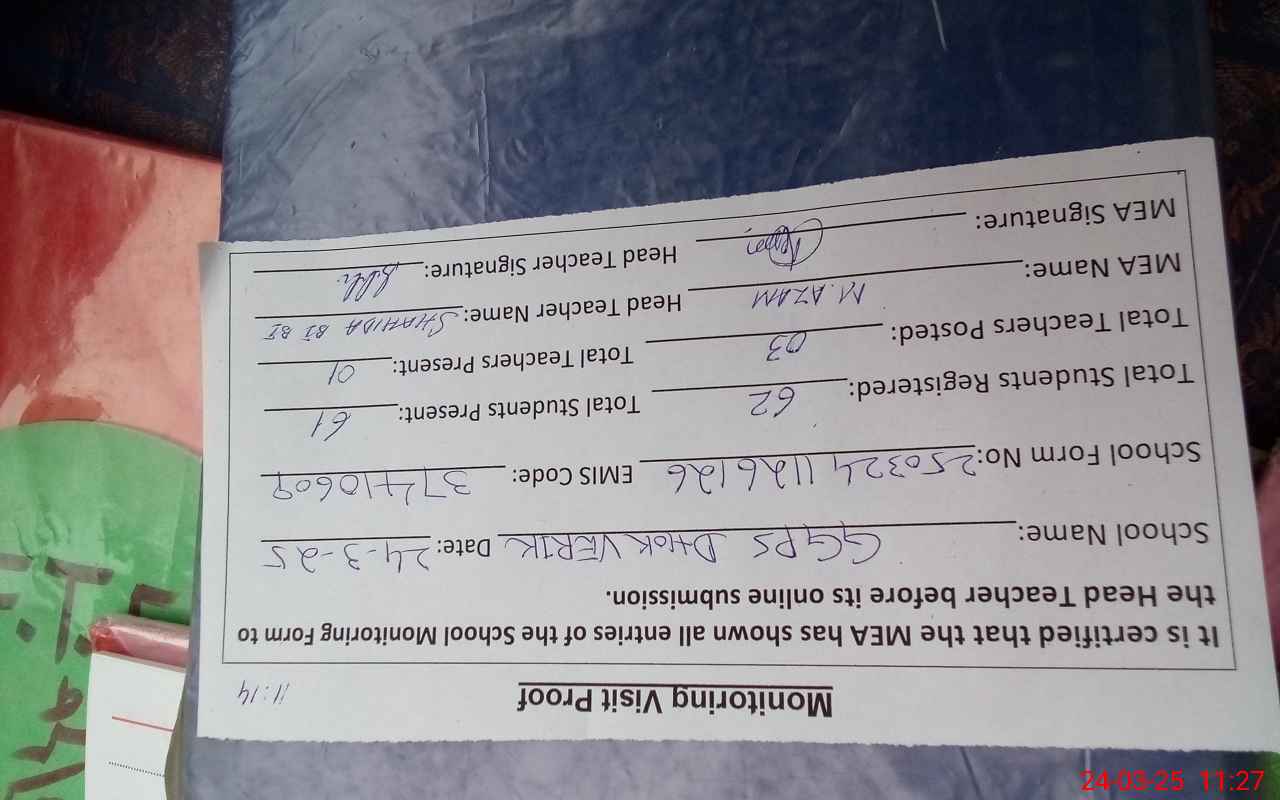 Monitoring Visit Proof 11:14
It is certified that the MEA has shown all entries of the School Monitoring Form to
the Head Teacher before its online submission.
School Name: GGPS DHOK VERIK Date: 24-3-25
School Form No: 250324 1126126 EMIS Code: 37410609
Total Students Registered: 62 Total Students Present: 61
Total Teachers Posted: 03 Total Teachers Present: 01
MEA Name: M. AZAM Head Teacher Name: SHAHIDA BI BI
MEA Signature: Head Teacher Signature:
24-03-25 11:27